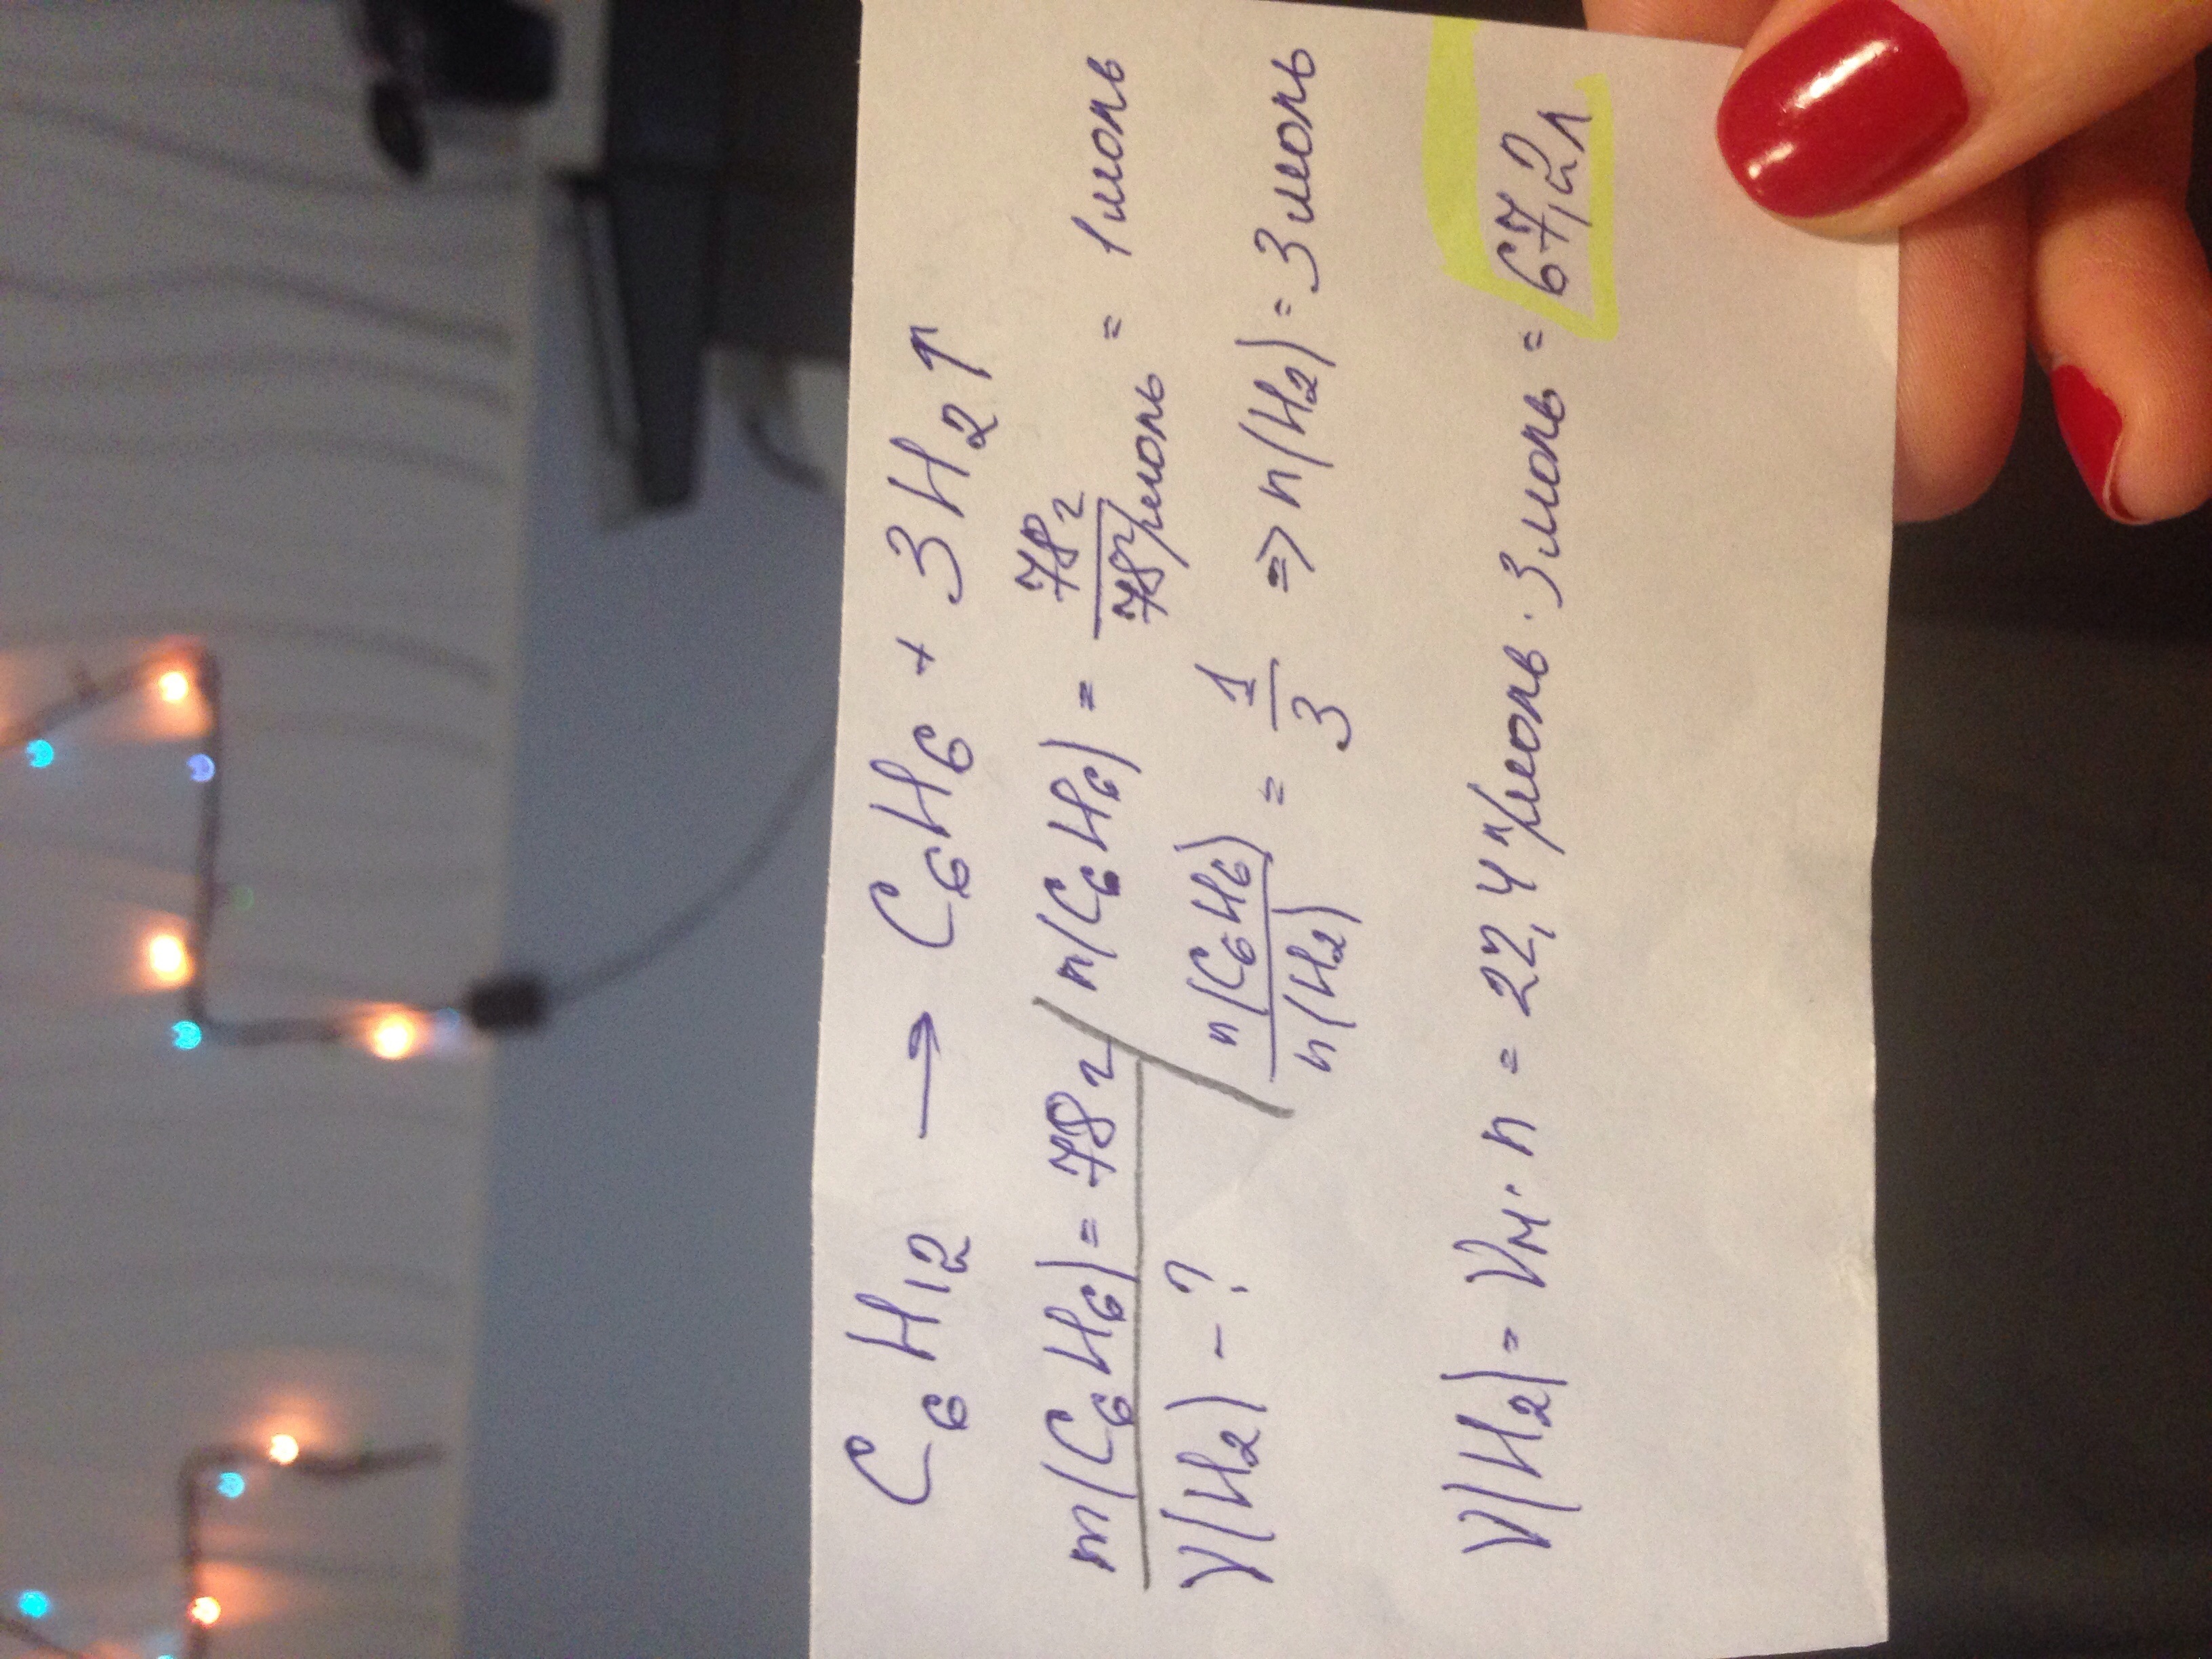 C₆H₁₂ → C₆H₆ + 3H₂↑
m(C₆H₆) = 78г n(C₆H₆) = 78г / 78г/моль = 1моль
V(H₂) - ? n(C₆H₆) / n(H₂) = 1/3 => n(H₂) = 3моль
V(H₂) = Vм · n = 22,4л/моль · 3моль = 67,2л